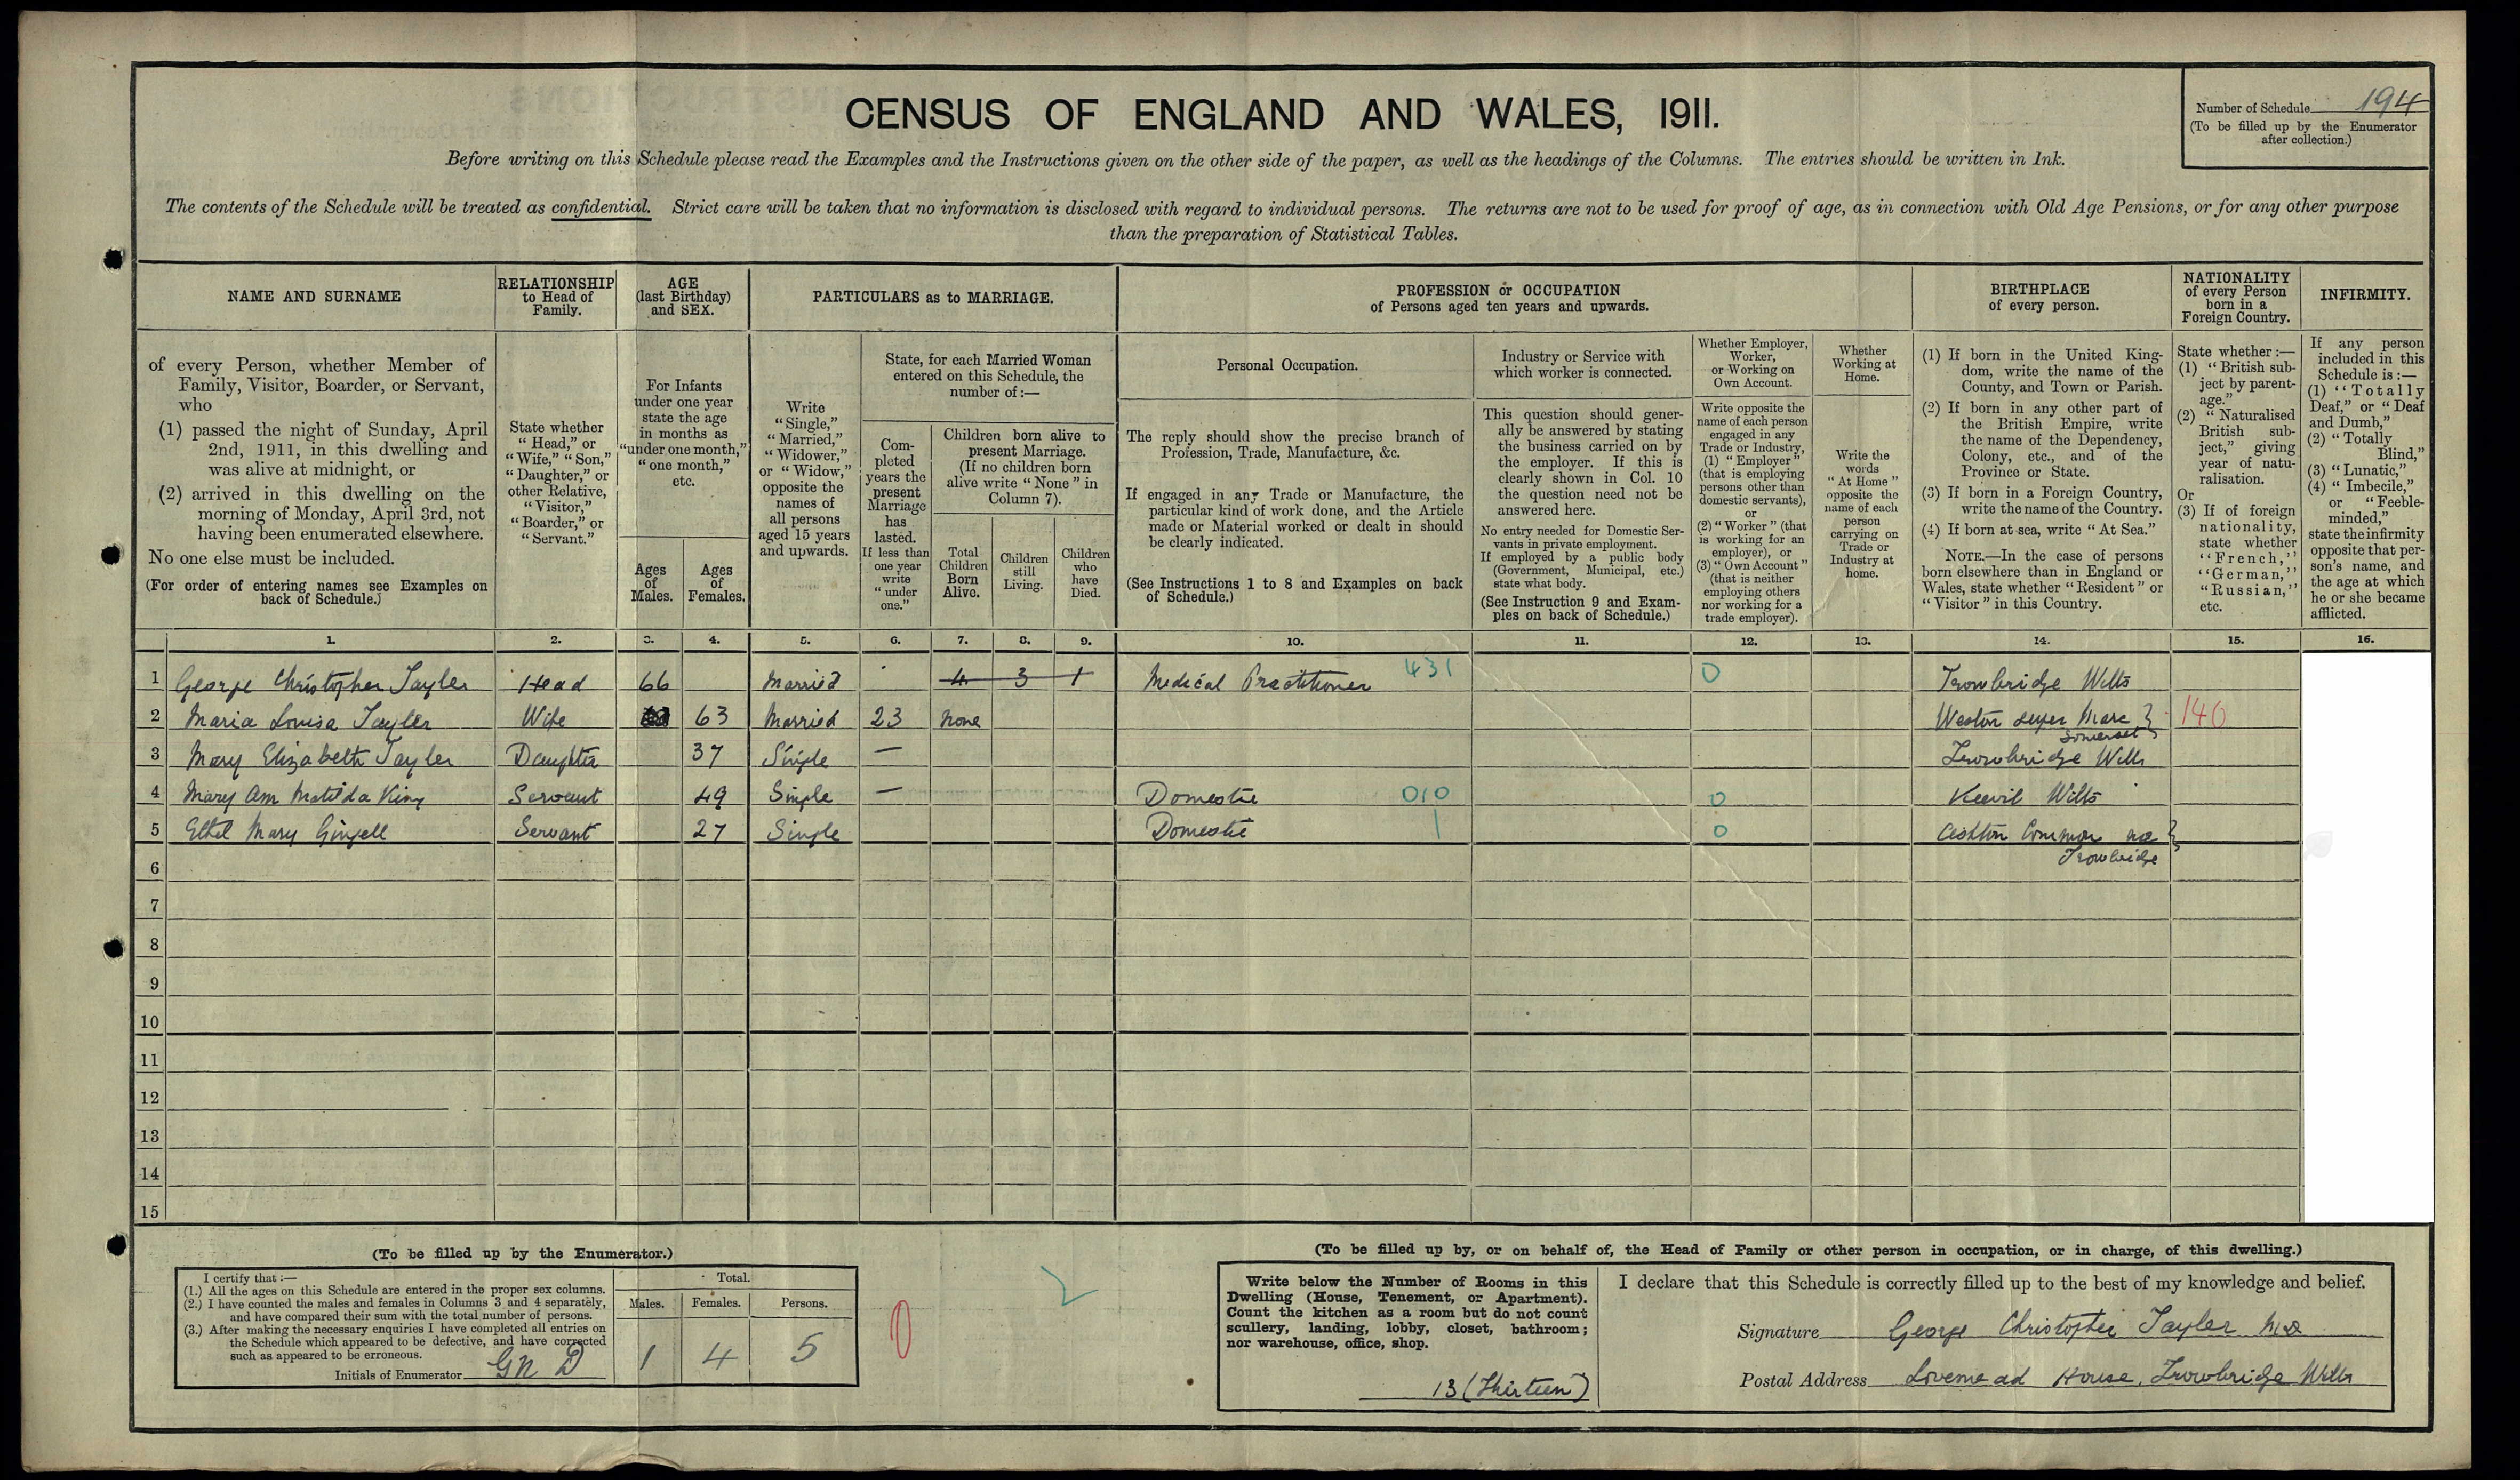 CENSUS OF ENGLAND AND WALES, 1911.
Number of Schedule 194
(To be filled up by the Enumerator
after collection.)
Before writing on this Schedule please read the Examples and the Instructions given on the other side of the paper, as well as the headings of the Columns. The entries should be written in Ink.
The contents of the Schedule will be treated as confidential. Strict care will be taken that no information is disclosed with regard to individual persons. The returns are not to be used for proof of age, as in connection with Old Age Pensions, or for any other purpose
than the preparation of Statistical Tables.
NAME AND SURNAME
of every Person, whether Member of
Family, Visitor, Boarder, or Servant,
who
(1) passed the night of Sunday, April
2nd, 1911, in this dwelling and
was alive at midnight, or
(2) arrived in this dwelling on the
morning of Monday, April 3rd, not
having been enumerated elsewhere.
No one else must be included.
(For order of entering names see Examples on
back of Schedule.)
RELATIONSHIP
to Head of
Family.
State whether
"Head," or
"Wife," "Son,"
"Daughter," or
other Relative,
"Visitor,"
"Boarder," or
"Servant."
AGE
(last Birthday)
and SEX.
For Infants
under one year
state the age
in months as
"under one month,"
"one month,"
etc.
Ages
of
Males.
Ages
of
Females.
PARTICULARS as to MARRIAGE.
Write
"Single,"
"Married,"
"Widower,"
or "Widow,"
opposite the
names of
all persons
aged 15 years
and upwards.
State, for each Married Woman
entered on this Schedule, the
number of:—
Com-
pleted
years the
present
Marriage
has
lasted.
If less than
one year
write
"under
one."
Children born alive to
present Marriage.
(If no children born
alive write "None" in
Column 7).
Total
Children
Born
Alive.
Children
still
Living.
Children
who
have
Died.
PROFESSION or OCCUPATION
of Persons aged ten years and upwards.
Personal Occupation.
The reply should show the precise branch of
Profession, Trade, Manufacture, &c.
If engaged in any Trade or Manufacture, the
particular kind of work done, and the Article
made or Material worked or dealt in should
be clearly indicated.
(See Instructions 1 to 8 and Examples on back
of Schedule.)
Industry or Service with
which worker is connected.
This question should gener-
ally be answered by stating
the business carried on by
the employer. If this is
clearly shown in Col. 10
the question need not be
answered here.
No entry needed for Domestic Ser-
vants in private employment.
If employed by a public body
(Government, Municipal, etc.)
state what body.
(See Instruction 9 and Exam-
ples on back of Schedule.)
Whether Employer,
Worker,
or Working on
Own Account.
Write opposite the
name of each person
engaged in any
Trade or Industry,
(1) "Employer"
(that is employing
persons other than
domestic servants),
or
(2) "Worker" (that
is working for an
employer), or
(3) "Own Account"
(that is neither
employing others
nor working for a
trade employer).
Whether
Working at
Home.
Write the
words
"At Home"
opposite the
name of each
person
carrying on
Trade or
Industry at
home.
BIRTHPLACE
of every person.
(1) If born in the United King-
dom, write the name of the
County, and Town or Parish.
(2) If born in any other part of
the British Empire, write
the name of the Dependency,
Colony, etc., and of the
Province or State.
(3) If born in a Foreign Country,
write the name of the Country.
(4) If born at sea, write "At Sea."
NOTE.—In the case of persons
born elsewhere than in England or
Wales, state whether "Resident" or
"Visitor" in this Country.
NATIONALITY
of every Person
born in a
Foreign Country.
State whether:—
(1) "British sub-
ject by parent-
age."
(2) "Naturalised
British sub-
ject," giving
year of natu-
ralisation.
Or
(3) If of foreign
nationality,
state whether
"French,"
"German,"
"Russian,"
etc.
INFIRMITY.
If any person
included in this
Schedule is:—
(1) "Totally
Deaf," or "Deaf
and Dumb,"
(2) "Totally
Blind,"
(3) "Lunatic,"
(4) "Imbecile,"
or "Feeble-
minded,"
state the infirmity
opposite that per-
son's name, and
the age at which
he or she became
afflicted.
1. 2. 3. 4. 5. 6. 7. 8. 9. 10. 11. 12. 13. 14. 15. 16.
1 George Christopher Tayler Head 66 Married 4 3 1 Medical Practitioner 431 0 Trowbridge Wilts
2 Maria Louisa Tayler Wife 63 Married 23 None Weston super Mare } 140
Somerset
3 Mary Elizabeth Tayler Daughter 37 Single — Trowbridge Wilts
4 Mary Ann Matilda King Servant 49 Single — Domestic 010 0 Keevil Wilts
5 Ethel Mary Gingell Servant 27 Single Domestic 1 0 Ashton Common nr }
Trowbridge
6
7
8
9
10
11
12
13
14
15
(To be filled up by the Enumerator.)
I certify that:—
(1.) All the ages on this Schedule are entered in the proper sex columns.
(2.) I have counted the males and females in Columns 3 and 4 separately,
and have compared their sum with the total number of persons.
(3.) After making the necessary enquiries I have completed all entries on
the Schedule which appeared to be defective, and have corrected
such as appeared to be erroneous.
Initials of Enumerator G N D
Total.
Males. Females. Persons.
1 4 5
0
2
(To be filled up by, or on behalf of, the Head of Family or other person in occupation, or in charge, of this dwelling.)
Write below the Number of Rooms in this
Dwelling (House, Tenement, or Apartment).
Count the kitchen as a room but do not count
scullery, landing, lobby, closet, bathroom;
nor warehouse, office, shop.
13 (Thirteen)
I declare that this Schedule is correctly filled up to the best of my knowledge and belief.
Signature George Christopher Tayler MD
Postal Address Lovemead House, Trowbridge Wilts